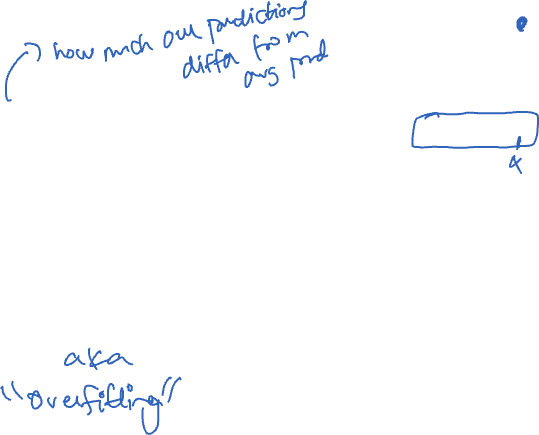 how much our predictions
differ from
avg pred
aka
"overfitting"